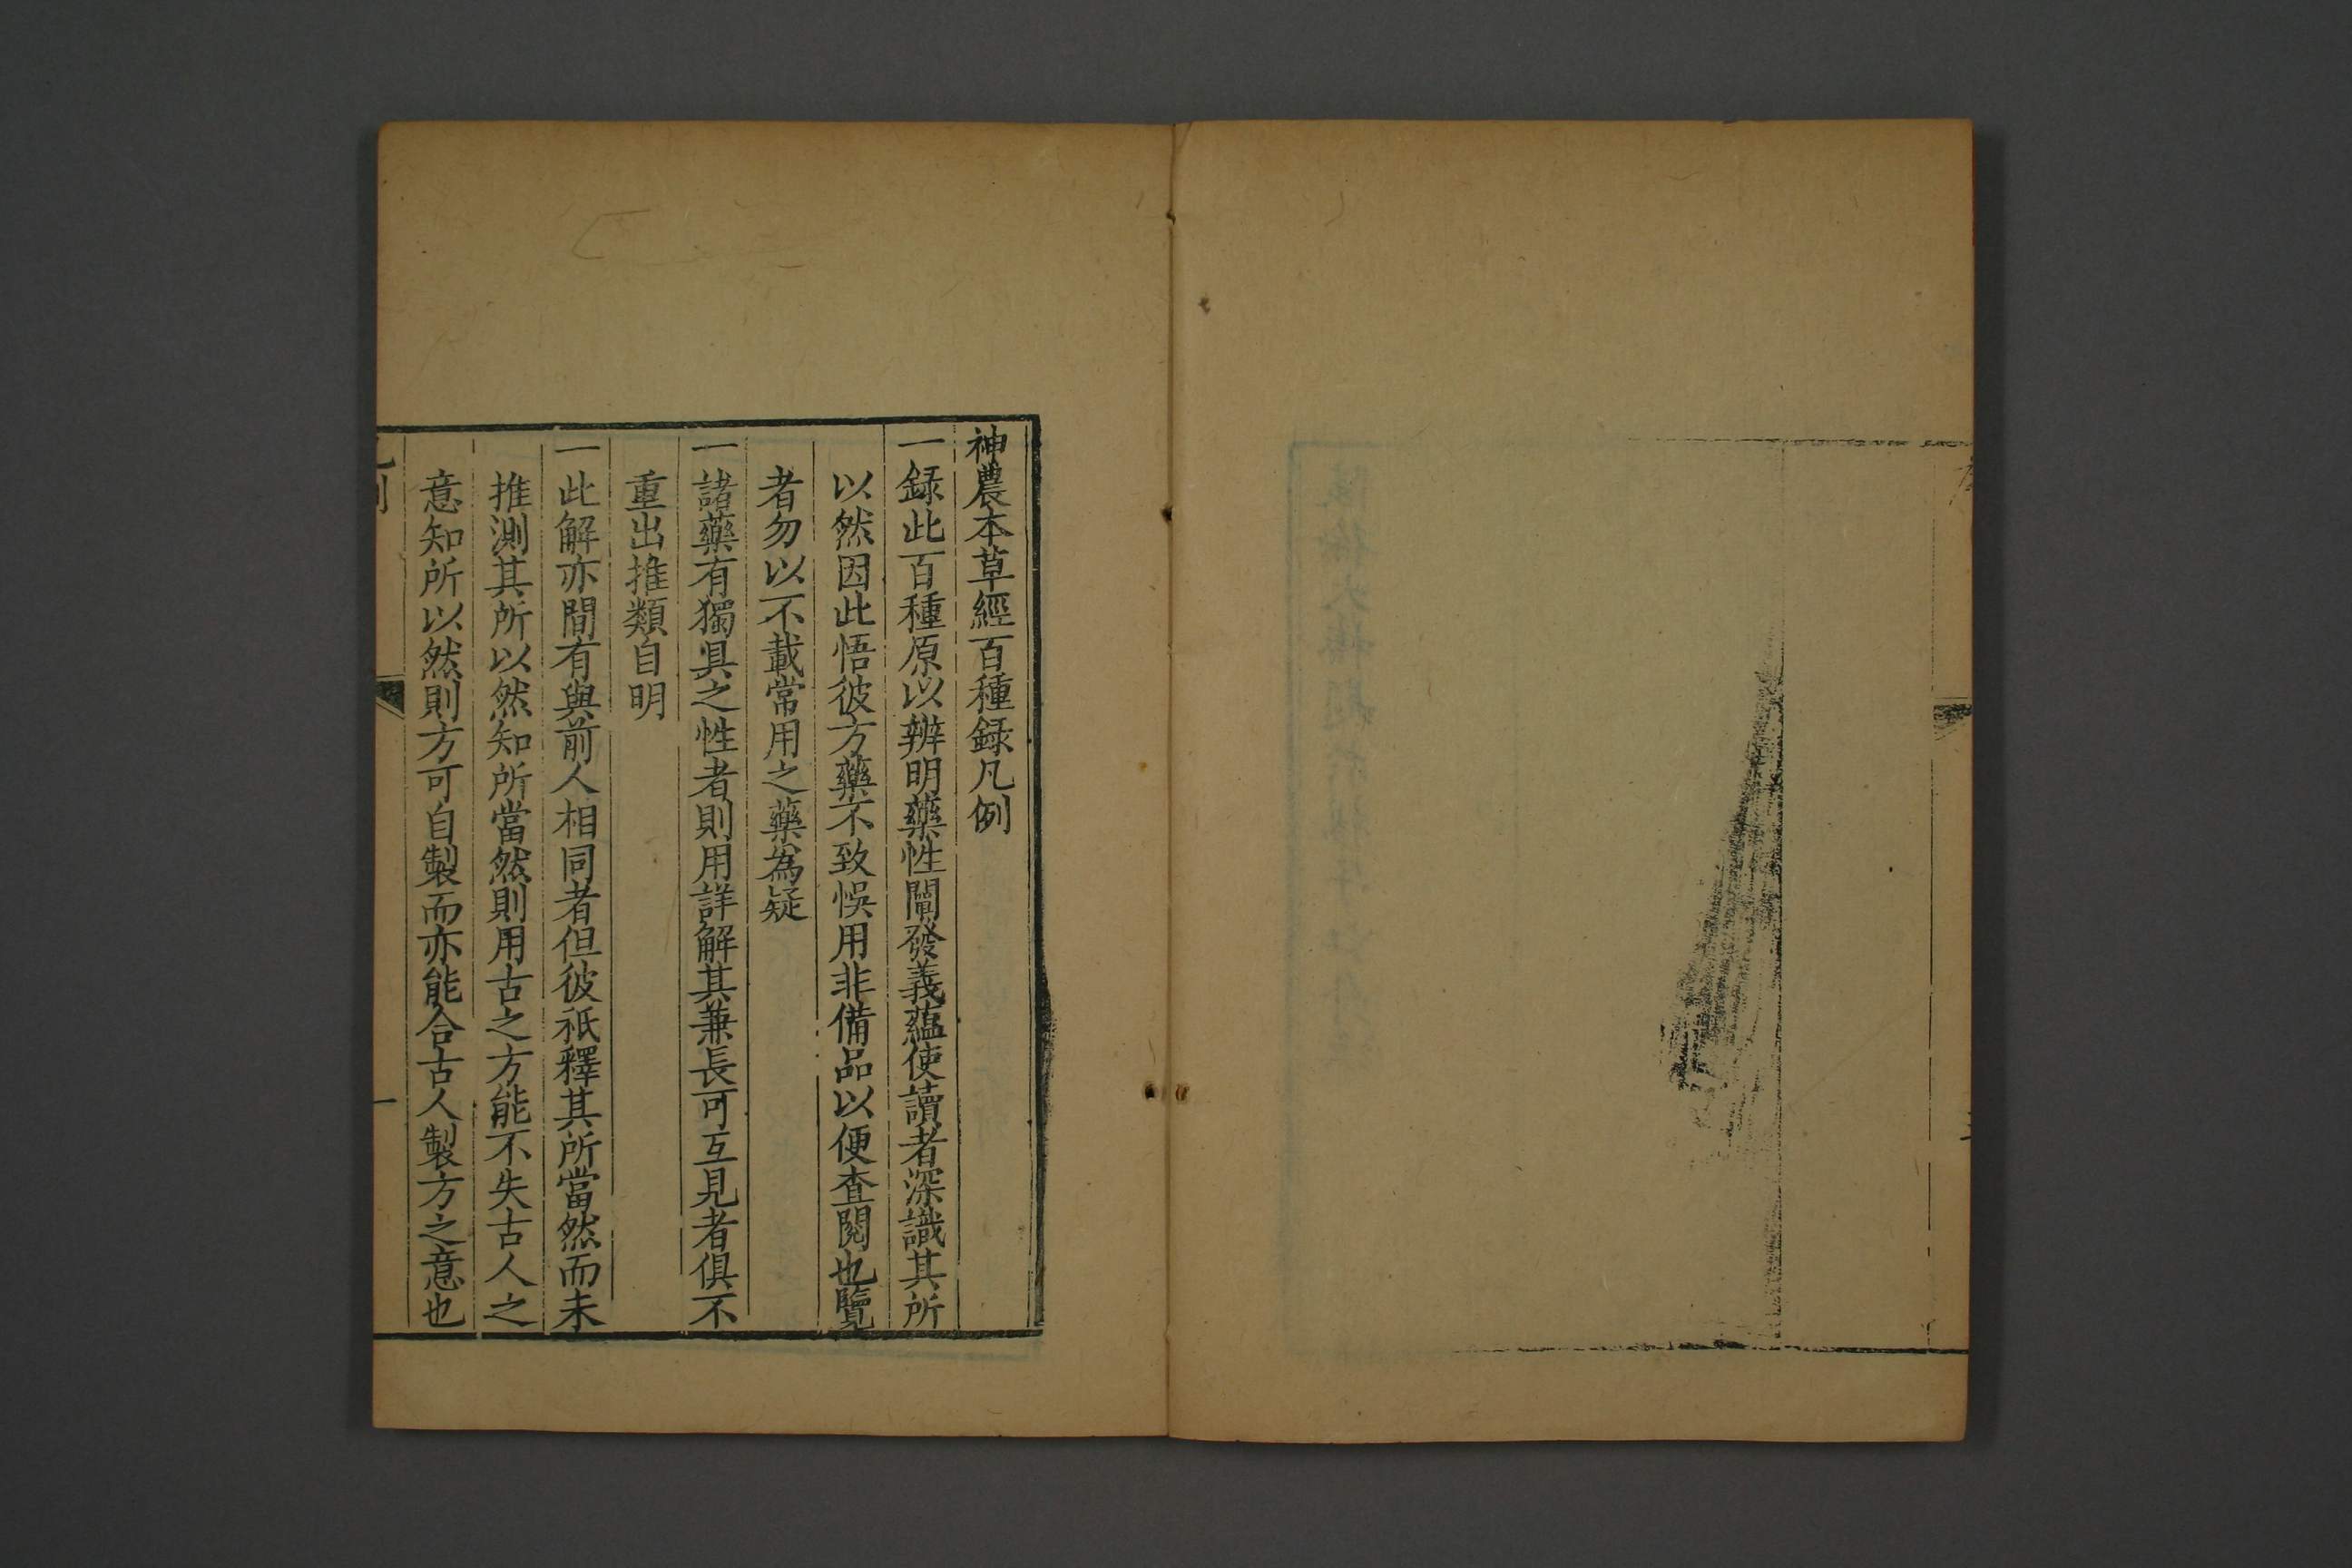 神農本草經百種録凡例
一録此百種原以辨明藥性闡發義蘊使讀者深識其所
以然因此悟彼方藥不致悞用非備品以便查閱也覽
者勿以不載常用之藥為疑
一諸藥有獨具之性者則用詳解其兼長可互見者俱不
重出推類自明
一此解亦間有與前人相同者但彼祇釋其所當然而未
推測其所以然知所當然則用古之方能不失古人之
意知所以然則方可自製而亦能合古人製方之意也
一